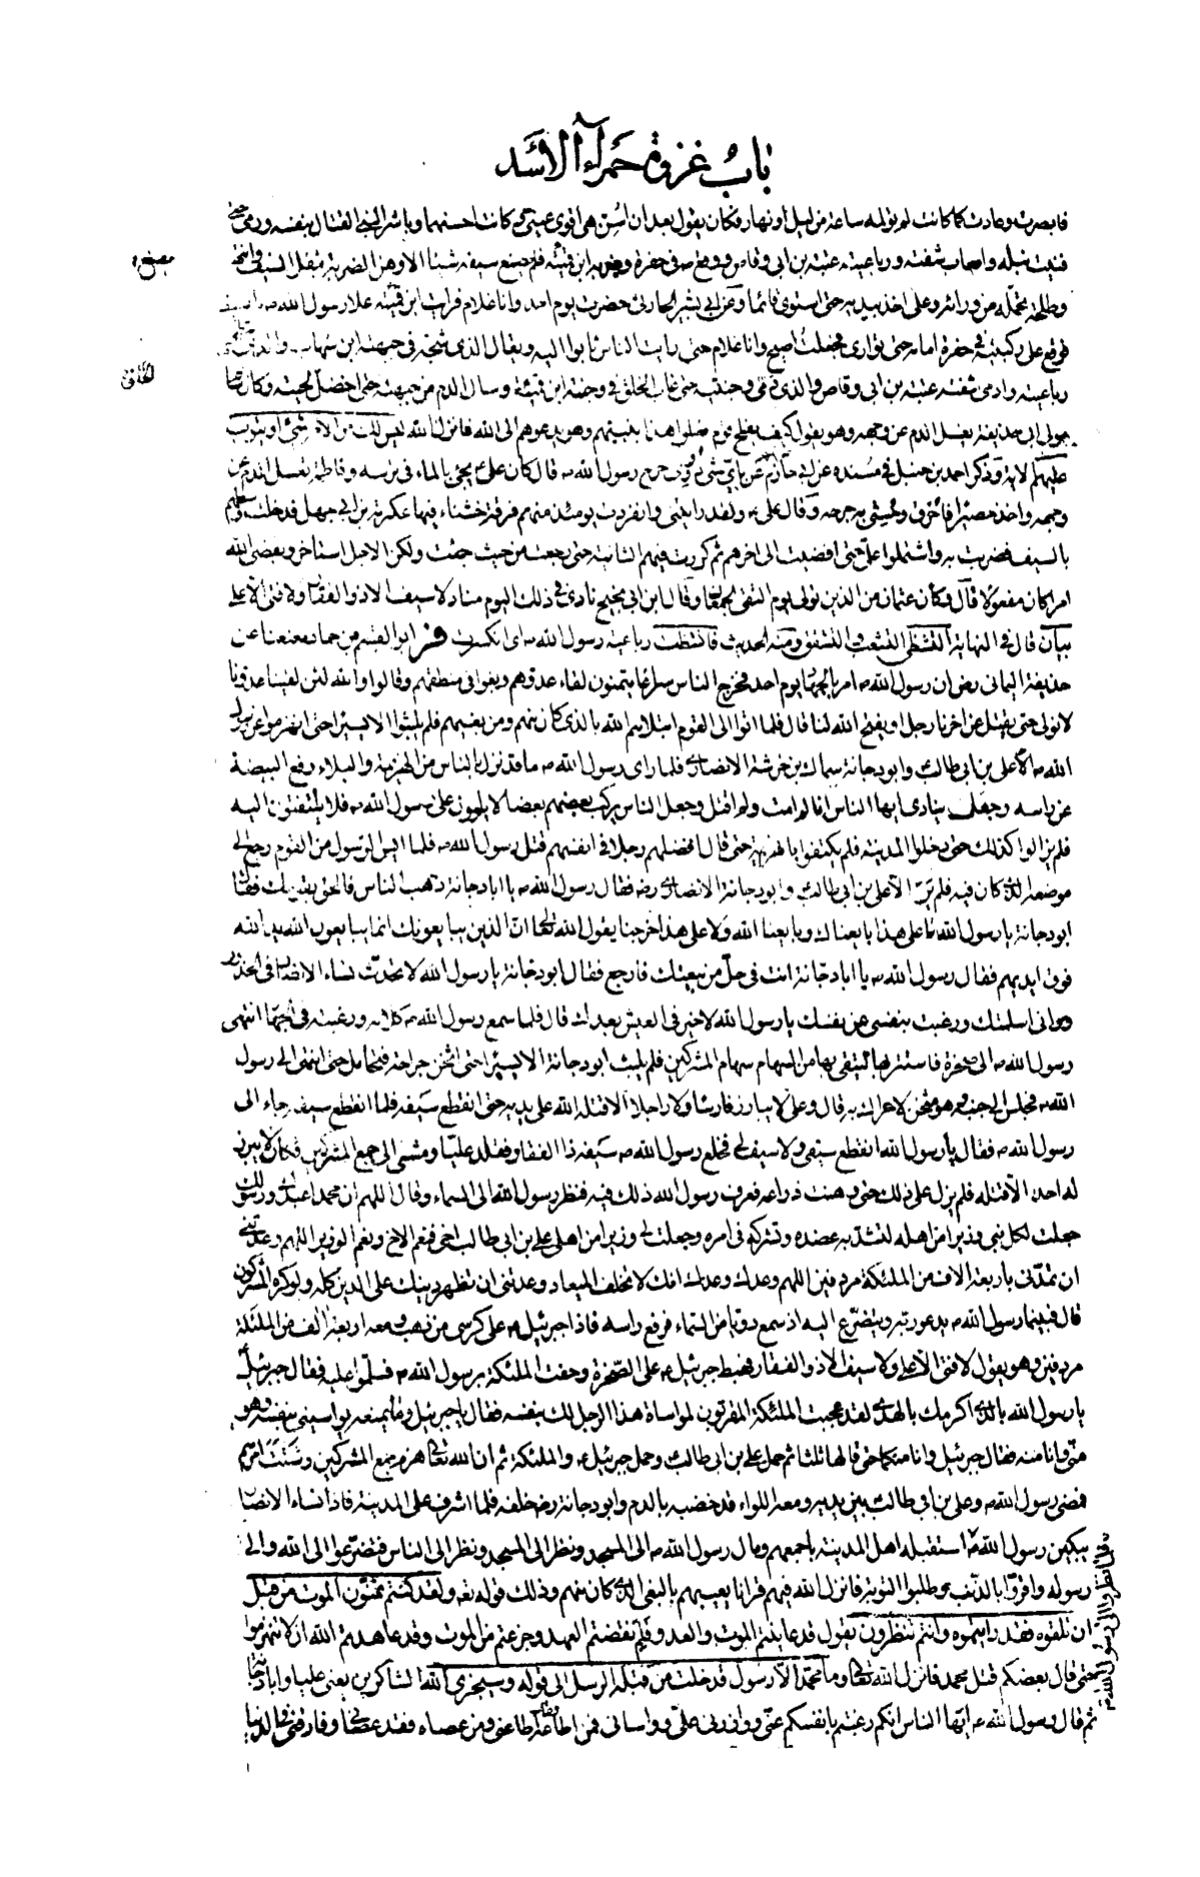 باب غزوة حمراء الأسد
فابصرت وعادت كما كانت لم تولمه ساعة من ليل او نهار فكان يقول بعد ان اسن هي اقوى عيني وكانت احسنهما وباشر النبي القتال بنفسه ورمى حتى
فنيت نبله واصاب شفته ورباعيته عتبة بن ابي وقاص ووقع ص في حفرة وضربه ابن قميئة فلم يصنع سيفه شيئا الا وهن الضربة بثقل السيف وانتهض
وطلحة يحمله من ورائه وعلي اخذ بيديه حتى استوى قائما وعن ابي بشير الحارثي حضرت يوم احد وانا غلام فرايت ابن قميئة علا رسول الله ص بالسيف
فوقع على ركبتيه في حفرة امامه حتى توارى فجعلت اصيح وانا غلام حتى رايت الناس ثابوا اليه ويقال الذي شجه في جبهته ابن شهاب والذي اشظى
رباعيته وادمى شفته عتبة بن ابي وقاص والذي دمى وجنتيه حتى غاب الحلق في وجنته ابن قميئة وسال الدم من جبهته حتى اخضل لحيته وكان سالم
مولى ابي حذيفة يغسل الدم عن وجهه وهو يقول كيف يفلح قوم فعلوا هذا بنبيهم وهو يدعوهم الى الله فانزل الله ليس لك من الامر شئ او يتوب
عليهم الاية وذكر احمد بن حنبل في مسنده عن ابي حازم عن باي شئ دووي جرح رسول الله ص قال كان علي يجئ بالماء في ترسه وفاطمة تغسل الدم عن
وجهه واخذ حصيرا فاحرق وحشي به جرحه وقال علي ع ولقد رايتني وانفردت يومئذ منهم فرقة خشناء فيها عكرمة بن ابي جهل فدخلت وسطهم
بالسيف فضربت به واشتملوا علي حتى افضيت الى اخرهم ثم كررت فيهم الثانية حتى رجعت من حيث جئت ولكن الاجل استاخر ويقضي الله
امرا كان مفعولا قال وكان عثمان من الذين تولى يوم التقى الجمعان وقال ابن ابي نجيح نادى في ذلك اليوم مناد لا سيف الا ذو الفقار ولا فتى الا علي
بيان قال في النهاية التشظي التشعب والتشقق ومنه الحديث فانشظت رباعية رسول الله ص اى انكسرت فر ابو القسم بن حماد معنعنا عن
حذيفة اليماني رض ان رسول الله ص امر بالجهاد يوم احد فخرج الناس سراعا يتمنون لقاء عدوهم وبغوا في منطقهم وقالوا والله لئن لقينا عدونا
لا نولي حتى يقتل عن اخرنا رجل او يفتح الله لنا قال فلما اتوا الى القوم ابتلاهم الله بالذي كان منهم ومن بغيهم فلم يلبثوا الا يسيرا حتى انهزموا عن رسول
الله ص الا علي بن ابي طالب وابو دجانة سماك بن خرشة الانصاري فلما راى رسول الله ص ما قد نزل بالناس من الهزيمة والبلاء رفع البيضة
عن راسه وجعل ينادي ايها الناس انا لم امت ولم اقتل وجعل الناس يركب بعضهم بعضا لا يلوون على رسول الله ص فلا يلتفتون اليه
فلم يزالوا كذلك حتى دخلوا المدينة فلم يكتفوا بالهزيمة حتى قال افضلهم رجلا في انفسهم قتل رسول الله ص فلما ايس الرسول من القوم رجع الى
موضعه الذي كان فيه فلم ير الا علي بن ابي طالب وابو دجانة الانصاري رض فقال رسول الله ص يا ابا دجانة ذهب الناس فالحق بقومك فقال
ابو دجانة يا رسول الله ما على هذا بايعناك وبايعنا الله ولا على هذا خرجنا يقول الله تعالى ان الذين يبايعونك انما يبايعون الله يد الله
فوق ايديهم فقال رسول الله ص يا ابا دجانة انت في حل من بيعتك فارجع فقال ابو دجانة يا رسول الله لا تحدث نساء الانصار في الخدور
اني اسلمتك ورغبت بنفسي عن نفسك يا رسول الله لا خير في العيش بعدك قال فلما سمع رسول الله ص كلامه ورغبته في الجهاد انتهى
رسول الله ص الى صخرة فاستتر بها ليتقي بها من السهام سهام المشركين فلم يلبث ابو دجانة الا يسيرا حتى اثخن جراحة فتحامل حتى انتهى الى رسول
الله ص فجلس الى جنبه وهو مثخن لا حراك به قال وعلي لا يبارز فارسا ولا راجلا الا قتله الله على يديه حتى انقطع سيفه فلما انقطع سيفه جاء الى
رسول الله ص فقال يا رسول الله انقطع سيفي ولا سيف لي فخلع رسول الله ص سيفه ذا الفقار فقلده عليا ومشى الى جمع المشركين فكان لا يبرز
له احد الا قتله فلم يزل على ذلك حتى وهنت ذراعه فعرف رسول الله ذلك فيه فنظر رسول الله الى السماء وقال اللهم ان محمدا عبدك ورسولك
جعلت لكل نبي وزيرا من اهله لتشد به عضده وتشركه في امره وجعلت لي وزيرا من اهلي علي بن ابي طالب اخي فنعم الاخ ونعم الوزير اللهم وعدتني
ان تمدني باربعة الاف من الملئكة مردفين اللهم وعدك وعدك انك لا تخلف الميعاد وعدتني ان تظهر دينك على الدين كله ولو كره المشركون
قال فبينما رسول الله ص يدعو ربه ويتضرع اليه اذ سمع دويا من السماء فرفع راسه فاذا جبرئيل ع على كرسي من ذهب ومعه اربعة الف من الملئكة
مردفين وهو يقول لا فتى الا علي ولا سيف الا ذو الفقار فهبط جبرئيل ع على الصخرة وحفت الملئكة برسول الله ص فسلموا عليه فقال جبرئيل
يا رسول الله بالذي اكرمك بالهدى لقد عجبت الملئكة المقربون لمواساة هذا الرجل لك بنفسه فقال يا جبرئيل وما يمنعه يواسيني بنفسه وهو
مني وانا منه فقال جبرئيل وانا منكما حتى قالها ثلثا ثم حمل علي بن ابي طالب وحمل جبرئيل ع والملئكة ثم ان الله تعالى هزم جمع المشركين وتشتت امرهم
فمضى رسول الله ص وعلي بن ابي طالب بين يديه ومعه اللواء قد خضبه بالدم وابو دجانة رض خلفه فلما اشرف على المدينة فاذا نساء الانصار
يبكين رسول الله ص استقبله اهل المدينة باجمعهم ومال رسول الله ص الى المسجد ونظر الى المسجد ونظر الى الناس فتضرعوا الى الله والى
رسوله واقروا بالذنب وطلبوا التوبة فانزل الله فيهم قرانا يعيبهم بالبغي الذي كان منهم وذلك قوله تع ولقد كنتم تمنون الموت من قبل
ان تلقوه فقد رايتموه وانتم تنظرون يقول قد عاينتم الموت والعدو فلم نقضتم العهد وجزعتم من الموت وقد عاهدتم الله ان لا تنهزموا
حتى قال بعضكم قتل محمد فانزل الله تعالى وما محمد الا رسول قد خلت من قبله الرسل الى قوله وسيجزي الله الشاكرين يعني عليا وابا دجانة
ثم قال رسول الله ص ايها الناس انكم رغبتم بانفسكم عني ووازرني علي وواساني فمن اطاعه فقد اطاعني ومن عصاه فقد عصاني وفارقني في الدنيا